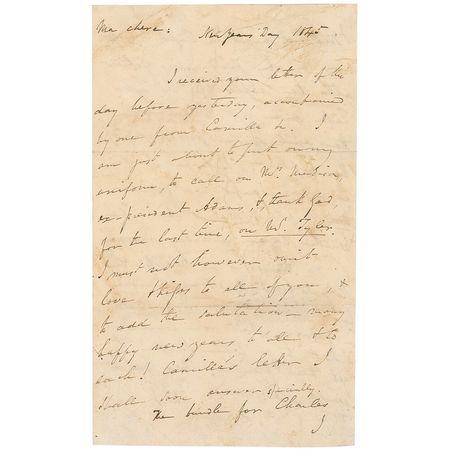 Ma chere: New Years Day 1845.
I received your letter of the
day before yesterday, accompanied
by one from Camilla &c. I
am just about to put on my
uniform, to call on Mrs. Madison,
ex-president Adams, &, thank God,
for the last time, on Mr. Tyler.
I must not however omit
love & kisses to all of you, &
to add the salutation — many
happy new years to all & to
each! Camilla's letter I
shall soon answer specially.
The bundle for Charles
I